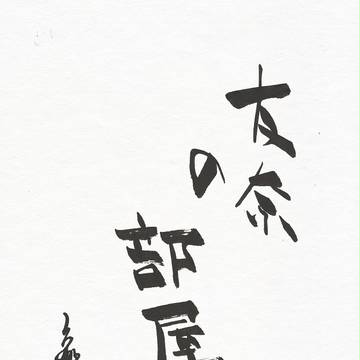 友奈
の
部屋